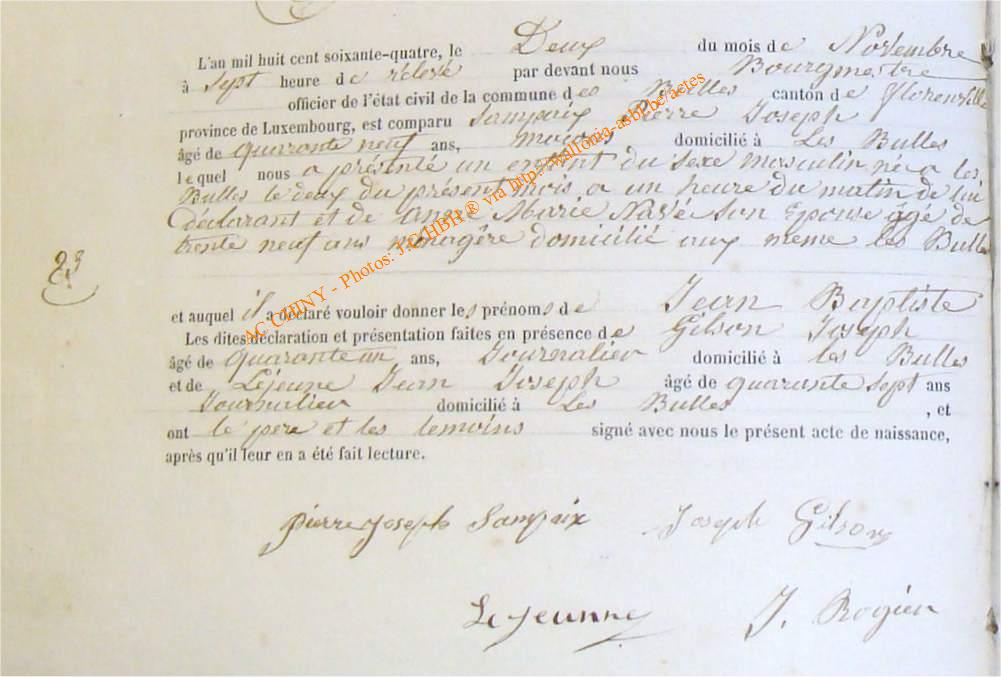 L'an mil huit cent soixante-quatre, le Deux du mois de Novembre
à sept heure de relevé par devant nous Bourgmestre
officier de l'état civil de la commune des Bulles canton de florenville
province de Luxembourg, est comparu Sampaix Pierre Joseph
âgé de quarante neuf ans, domicilié à Les Bulles
lequel nous a présenté un enfant du sexe masculin né a les
Bulles le deux du présent mois a un heure du matin de lui
déclarant et de anne Marie Navé son Epouse âgé de
trente neuf ans ménagère domicilié aux meme les Bulles
et auquel il a déclaré vouloir donner les prénoms de Jean Baptiste
Les dites déclaration et présentation faites en présence de Gilson Joseph
âgé de quarante un ans, Journalier domicilié à les Bulles
et de Lejeune Jean Joseph âgé de quarante sept ans
Journalier domicilié à Les Bulles , et
ont le pere et les temoins signé avec nous le présent acte de naissance,
après qu'il leur en a été fait lecture.
pierre joseph Sampaix Joseph Gilson
Lejeunne J. Rogier
AC CHINY - Photos: J.C HBH ® via http://wallonia-asbl.be/actes